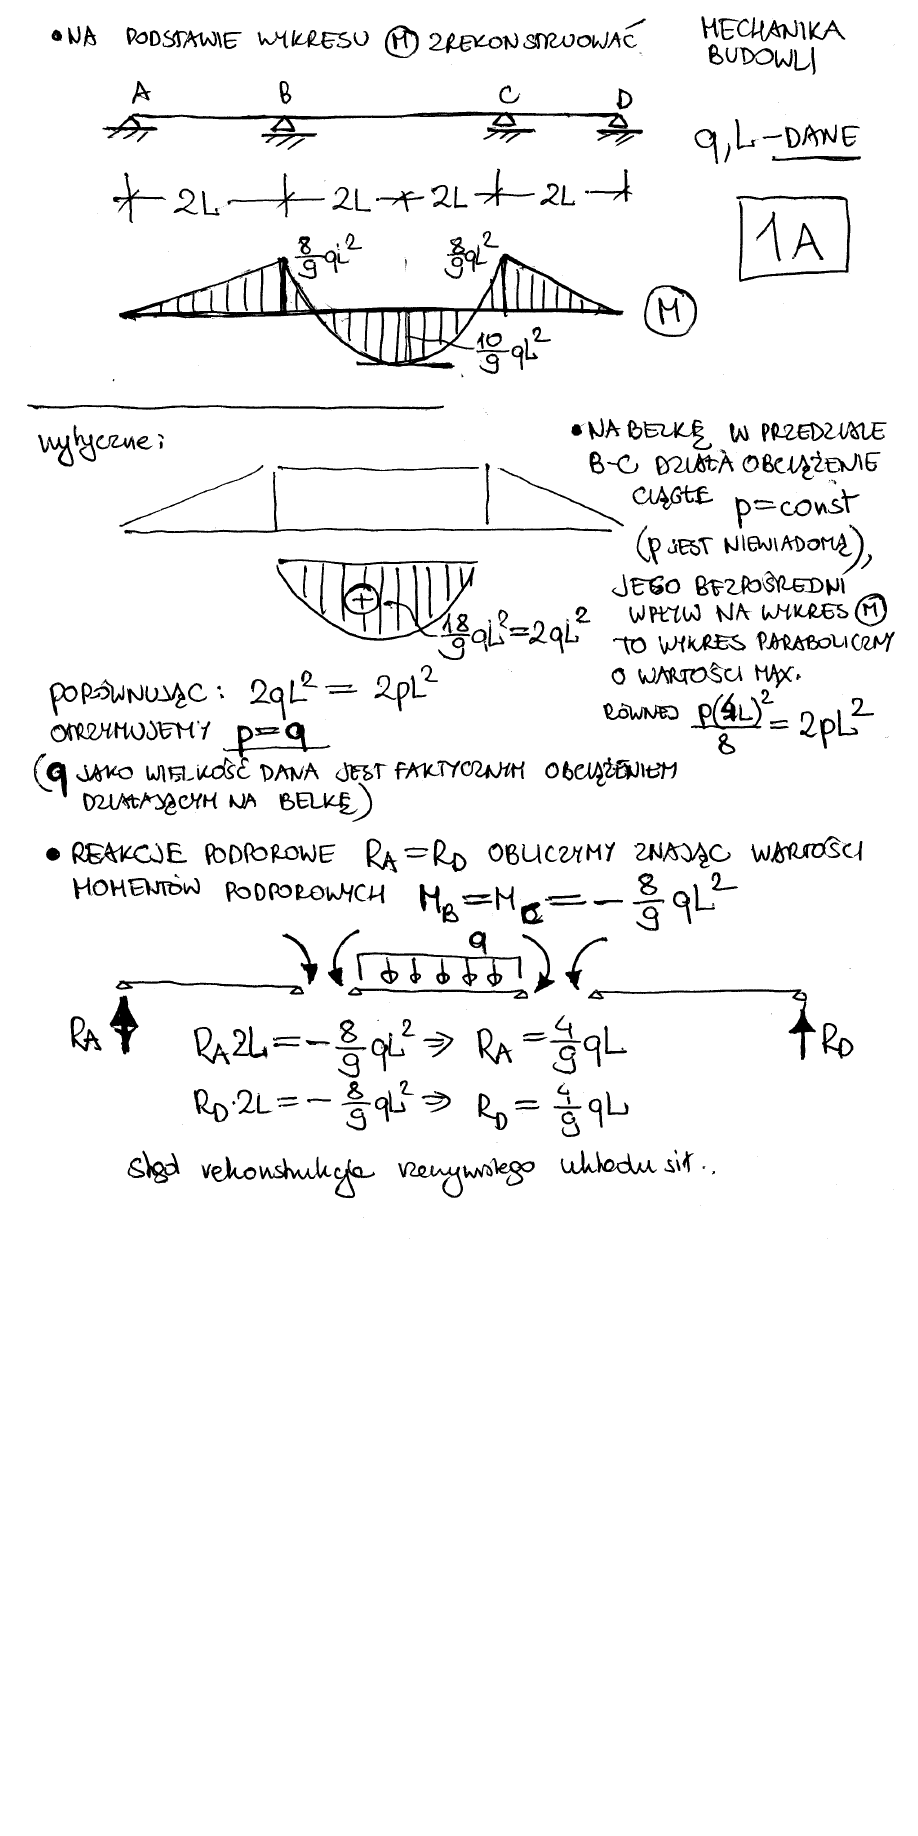 • NA PODSTAWIE WYKRESU (M) ZREKONSTRUOWAĆ
MECHANIKA
BUDOWLI
A B C D
q, L – DANE
2L 2L 2L 2L
1A
8/9 qL² 8/9 qL²
M
10/9 qL²
wytyczne:
• NA BELKĘ W PRZEDZIALE
B-C DZIAŁA OBCIĄŻENIE
CIĄGŁE p=const
(p JEST NIEWIADOMĄ),
JEGO BEZPOŚREDNI
WPŁYW NA WYKRES (M)
TO WYKRES PARABOLICZNY
O WARTOŚCI MAX.
RÓWNEJ p(4L)²/8 = 2pL²
+
18/9 qL² = 2qL²
PORÓWNUJĄC: 2qL² = 2pL²
OTRZYMUJEMY p=q
(q JAKO WIELKOŚĆ DANA JEST FAKTYCZNYM OBCIĄŻENIEM
DZIAŁAJĄCYM NA BELKĘ)
• REAKCJE PODPOROWE R_A = R_D OBLICZYMY ZNAJĄC WARTOŚCI
MOMENTÓW PODPOROWYCH M_B = M_C = - 8/9 qL²
q
R_A R_D
R_A 2L = - 8/9 qL² ⇒ R_A = 4/9 qL
R_D·2L = - 8/9 qL² ⇒ R_D = 4/9 qL
Stąd rekonstrukcja rzeczywistego układu sił..